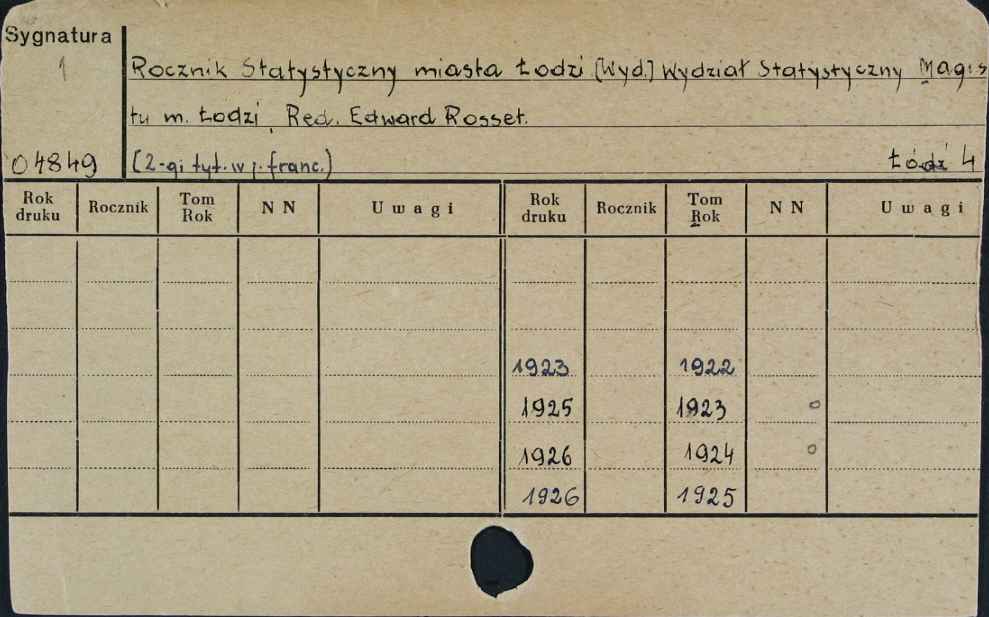 Sygnatura
1
Rocznik Statystyczny miasta Łodzi [Wyd.] Wydział Statystyczny Magis
tu m. Łodzi, Red. Edward Rosset.
04849 (2-gi tyt. w j. franc.) Łódź 4
Rok druku Rocznik Tom Rok NN Uwagi Rok druku Rocznik Tom Rok NN Uwagi
1923 1922
1925 1923 o
1926 1924 o
1926 1925